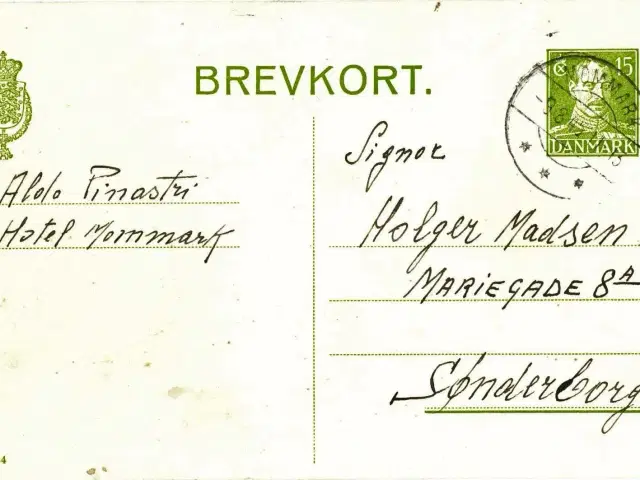 BREVKORT.
15
DANMARK
MOMMARK
Signor
Aldo Pinastri
Hotel Mommark
Holger Madsen
MARIEGADE 8A
Sønderborg
4